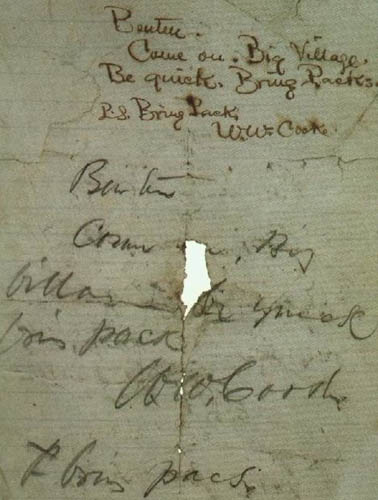 Benteen.
Come on. Big Village.
Be quick. Bring Packs.
P.S. Bring Pack
W.W. Cook
Benteen
Come on, Big
Village be quick
bring pack
W.W. Cook
P bring pacs